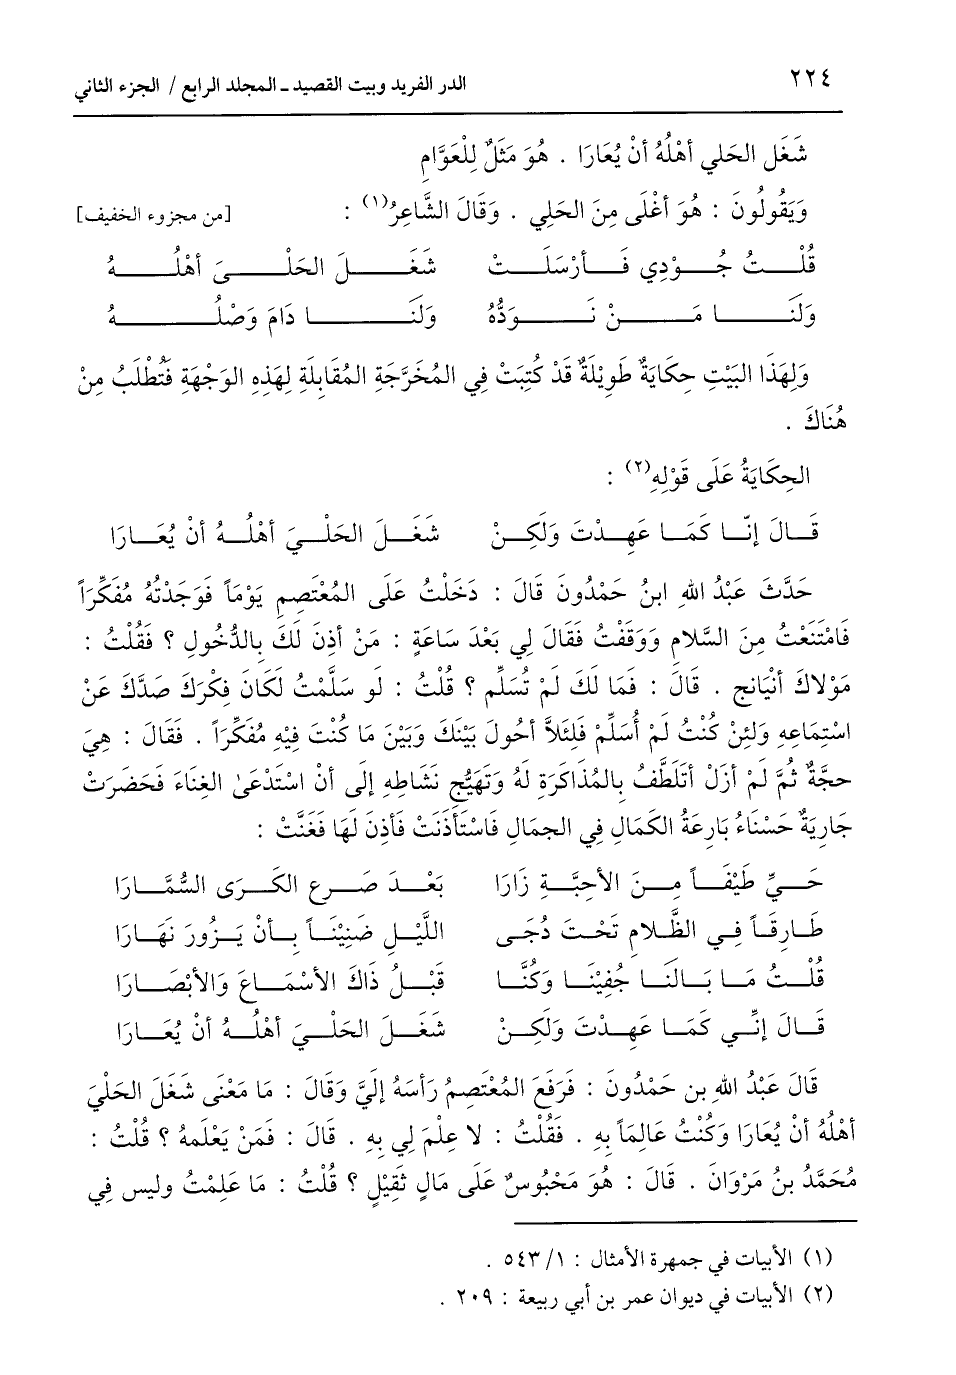 ٢٢٤ الدر الفريد وبيت القصيد ـ المجلد الرابع / الجزء الثاني
شَغَل الحَلي أهْلُهُ أنْ يُعَارَا . هُوَ مَثَلٌ لِلْعَوَّامِ
وَيَقُولُونَ : هُوَ أغْلَى مِنَ الحَلِي . وَقَالَ الشَّاعِرُ(١) : [من مجزوء الخفيف]
قُلْتُ جُوْدِي فَأرْسَلَتْ شَغَلَ الحَلْىَ أهْلُهُ
وَلَنَا مَنْ نَوَدُّهُ وَلَنَا دَامَ وَصْلُهُ
وَلِهَذَا البَيْتِ حِكَايَةٌ طَوِيْلَةٌ قَدْ كُتِبَتْ فِي المُخَرَّجَةِ المُقَابِلَةِ لِهَذِهِ الوَجْهَةِ فَتُطْلَبُ مِنْ
هُنَاكَ .
الحِكَايَةُ عَلَى قَوْلِهِ(٢) :
قَالَ إنَّا كَمَا عَهِدْتَ وَلَكِنْ شَغَلَ الحَلْيَ أهْلُهُ أنْ يُعَارَا
حَدَّثَ عَبْدُ اللهِ ابنُ حَمْدُونَ قَالَ : دَخَلْتُ عَلَى المُعْتَصِمِ يَوْمَاً فَوَجَدْتُهُ مُفَكِّرَاً
فَامْتَنَعْتُ مِنَ السَّلَامِ وَوَقَفْتُ فَقَالَ لِي بَعْدَ سَاعَةٍ : مَنْ أذِنَ لَكَ بِالدُّخُولِ ؟ فَقُلْتُ :
مَوْلَاكَ أنْيَانج . قَالَ : فَمَا لَكَ لَمْ تُسَلِّم ؟ قُلْتُ : لَو سَلَّمْتُ لَكَانَ فِكْرَكَ صَدَّكَ عَنْ
اسْتِمَاعِهِ وَلَئِنْ كُنْتُ لَمْ أُسَلِّمْ فَلِئَلاَّ أحُولَ بَيْنَكَ وَبَيْنَ مَا كُنْتَ فِيْهِ مُفَكِّرَاً . فَقَالَ : هِيَ
حجَّةٌ ثُمَّ لَمْ أزَلْ أتَلَطَّفُ بِالمُذَاكَرَةِ لَهُ وَتَهَيُّجِ نَشَاطِهِ إلَى أنْ اسْتَدْعَىٰ الغِنَاءَ فَحَضَرَتْ
جَارِيَةٌ حَسْنَاءُ بَارِعَةُ الكَمَالِ فِي الجمَالِ فَاسْتَأذَنَتْ فَأذِنَ لَهَا فَغَنَّتْ :
حَيِّ طَيْفَاً مِنَ الأحِبَّةِ زَارَا بَعْدَ صَرعِ الكَرَى السُّمَّارَا
طَارِقَاً فِي الظَّلَامِ تَحْتَ دُجَى اللَّيْلِ ضَنِيْنَاً بِأنْ يَزُورَ نَهَارَا
قُلْتُ مَا بَالَنَا جُفِيْنَا وَكُنَّا قَبْلُ ذَاكَ الأسْمَاعَ وَالأبْصَارَا
قَالَ إنِّي كَمَا عَهِدْتَ وَلَكِنْ شَغَلَ الحَلْيَ أهْلُهُ أنْ يُعَارَا
قَالَ عَبْدُ اللهِ بن حَمْدُونَ : فَرَفَعَ المُعْتَصِمُ رَأسَهُ إلَيَّ وَقَالَ : مَا مَعْنَى شَغَلَ الحَلْيَ
أهْلُهُ أنْ يُعَارَا وَكُنْتُ عَالِمَاً بِهِ . فَقُلْتُ : لَا عِلْمَ لِي بِهِ . قَالَ : فَمَنْ يَعْلَمهُ ؟ قُلْتُ :
مُحَمَّدُ بنُ مَرْوَانَ . قَالَ : هُوَ مَحْبُوسٌ عَلَى مَالٍ ثَقِيْلٍ ؟ قُلْتُ : مَا عَلِمْتُ وليس فِي
(١) الأبيات في جمهرة الأمثال : ١/ ٥٤٣ .
(٢) الأبيات في ديوان عمر بن أبي ربيعة : ٢٠٩ .